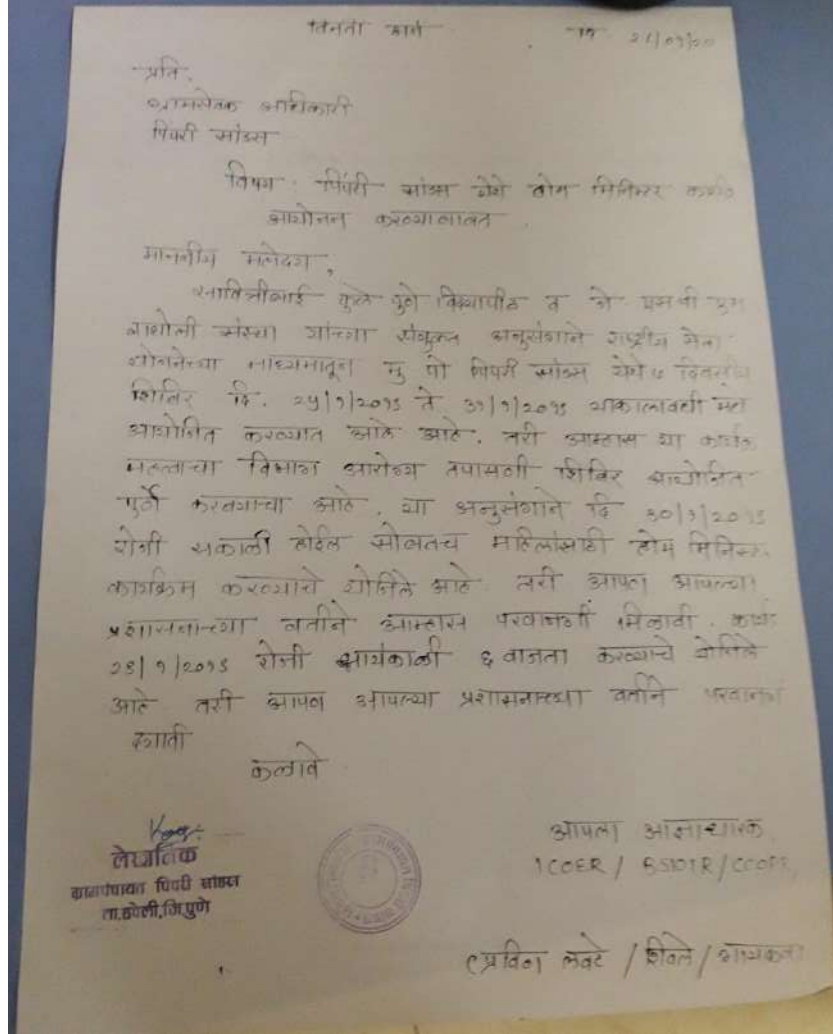 विनंती अर्ज
प्रति,
ग्रामसेवक अधिकारी
पिंपरी सांडस
विषय : पिंपरी सांडस येथे होम मिनिस्टर
आयोजन करण्याबाबत .
माननीय महोदय,
सावित्रीबाई फुले पुणे विद्यापीठ व जे एस पी एम
वाघोली संस्था यांच्या संयुक्त अनुसंगाने राष्ट्रीय सेवा
योजनेच्या माध्यमातून मु पो पिंपरी सांडस येथे ७ दिवसीय
शिबिर दि. २५/१/२०१९ ते ३१/१/२०१९ याकालावधी मधे
आयोजित करण्यात आले आहे. तरी आम्हास या
महत्वाचा विभाग आरोग्य तपासणी शिबिर आयोजित
पुर्ण करावयाचा आहे. या अनुसंगाने दि ३०/१/२०१९
रोजी सकाळी होईल सोबतच महिलांसाठी होम मिनिस्टर
कार्यक्रम करण्याचे योजिले आहे. तरी आपण आपल्या
प्रशासनाच्या वतीने आम्हास परवानगी मिळावी.
२९/१/२०१९ रोजी सायंकाळी ६ वाजता करण्याचे योजिले
आहे तरी आपण आपल्या प्रशासनाच्या वतीने परवानगी
द्यावी
कळावे
आपला आज्ञाधारक
ICOER / BSIOTR/CCOPR
ग्रामपंचायत पिंपरी सांडस
ता.हवेली,जि.पुणे
प्रविण लवटे / शिवले /